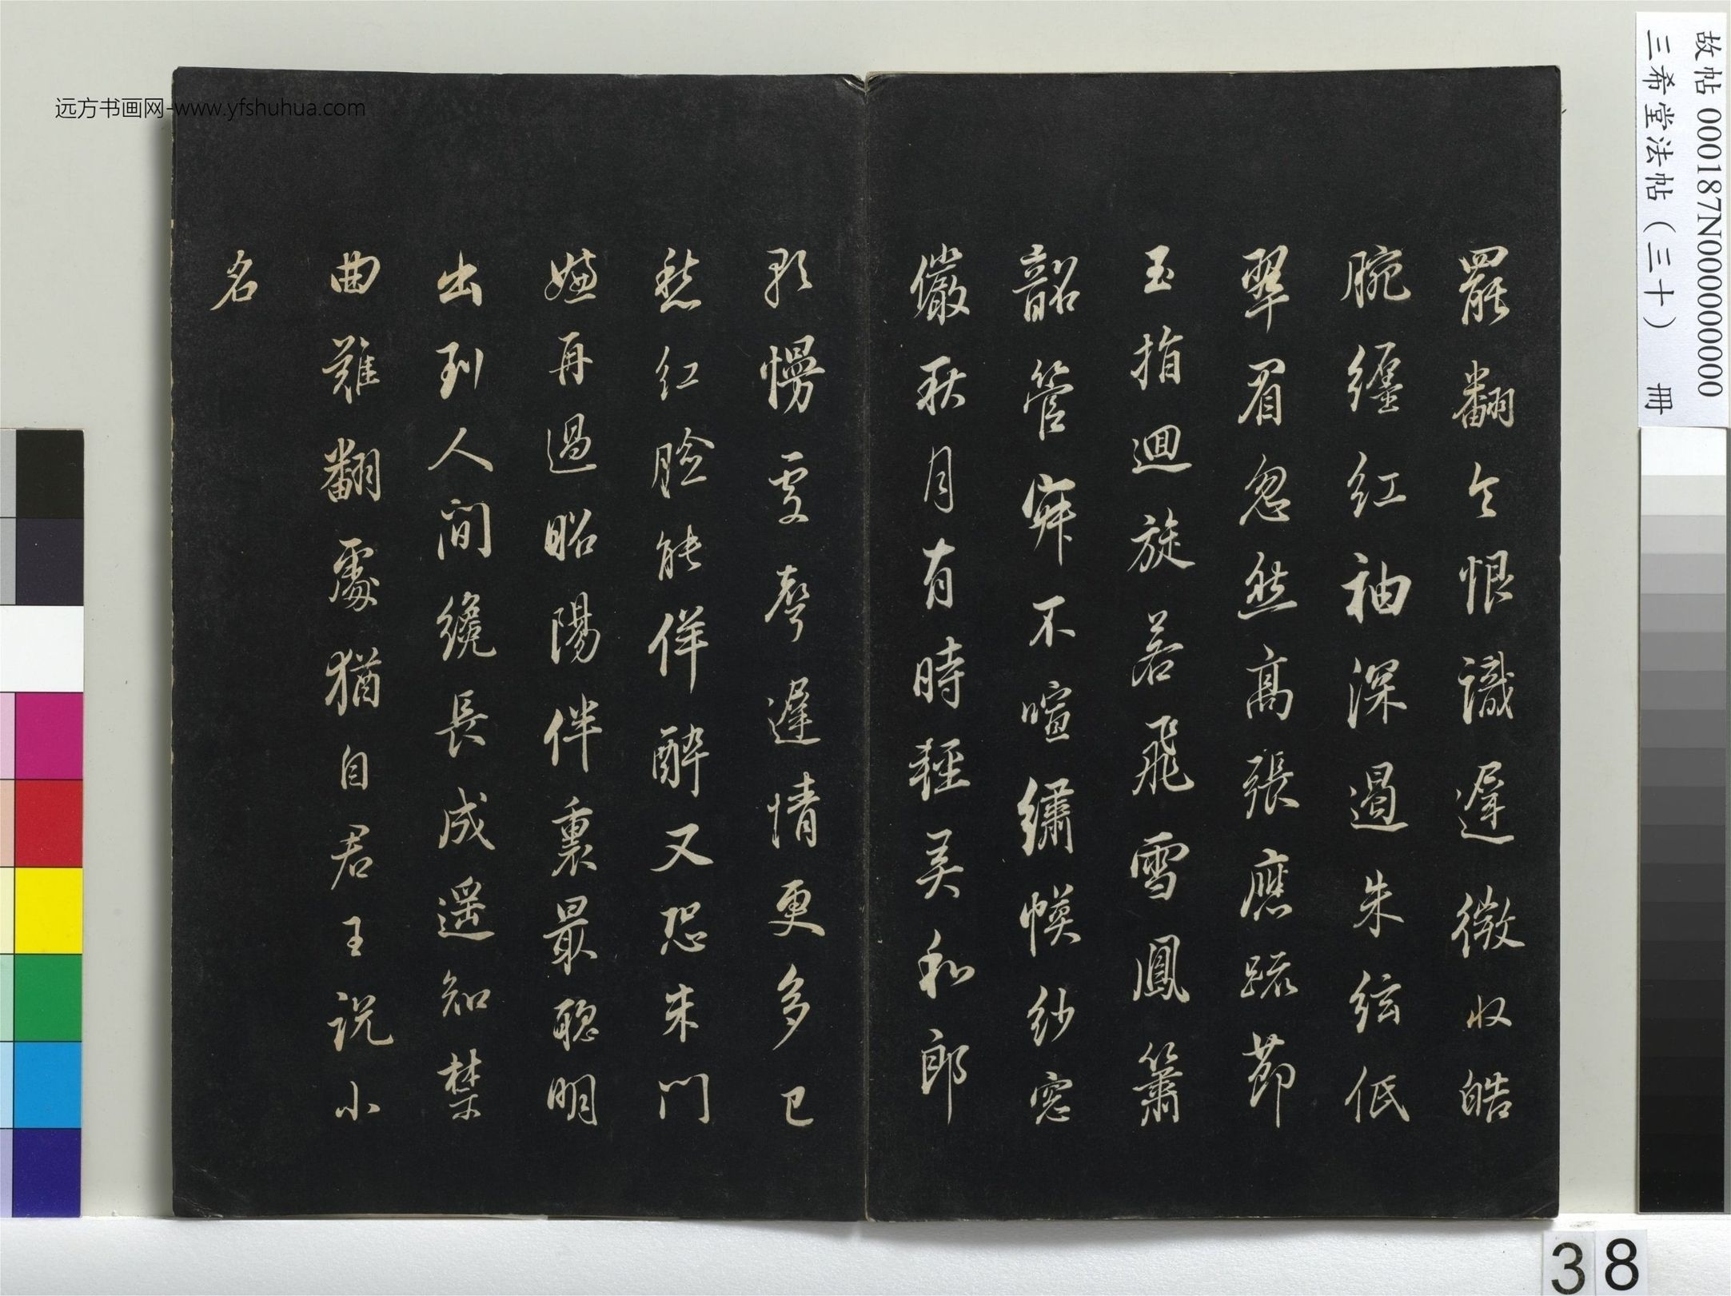 罷翻令恨識遲微收皓
腕纏紅袖深遏朱絃低
翠眉忽然高張應疏節
玉指迴旋若飛雪鳳簫
韶管寂不喧繡幙紗窓
儼秋月有時輕弄和郎
歌慢處聲遲情更多已
愁紅臉能佯醉又恐朱門
再過昭陽伴裏最聰明
出到人間纔長成遙知禁
曲難翻處猶自君王說小
名
故帖 000187N000000000
三希堂法帖（三十） 冊
远方书画网-www.yfshuhua.com
38